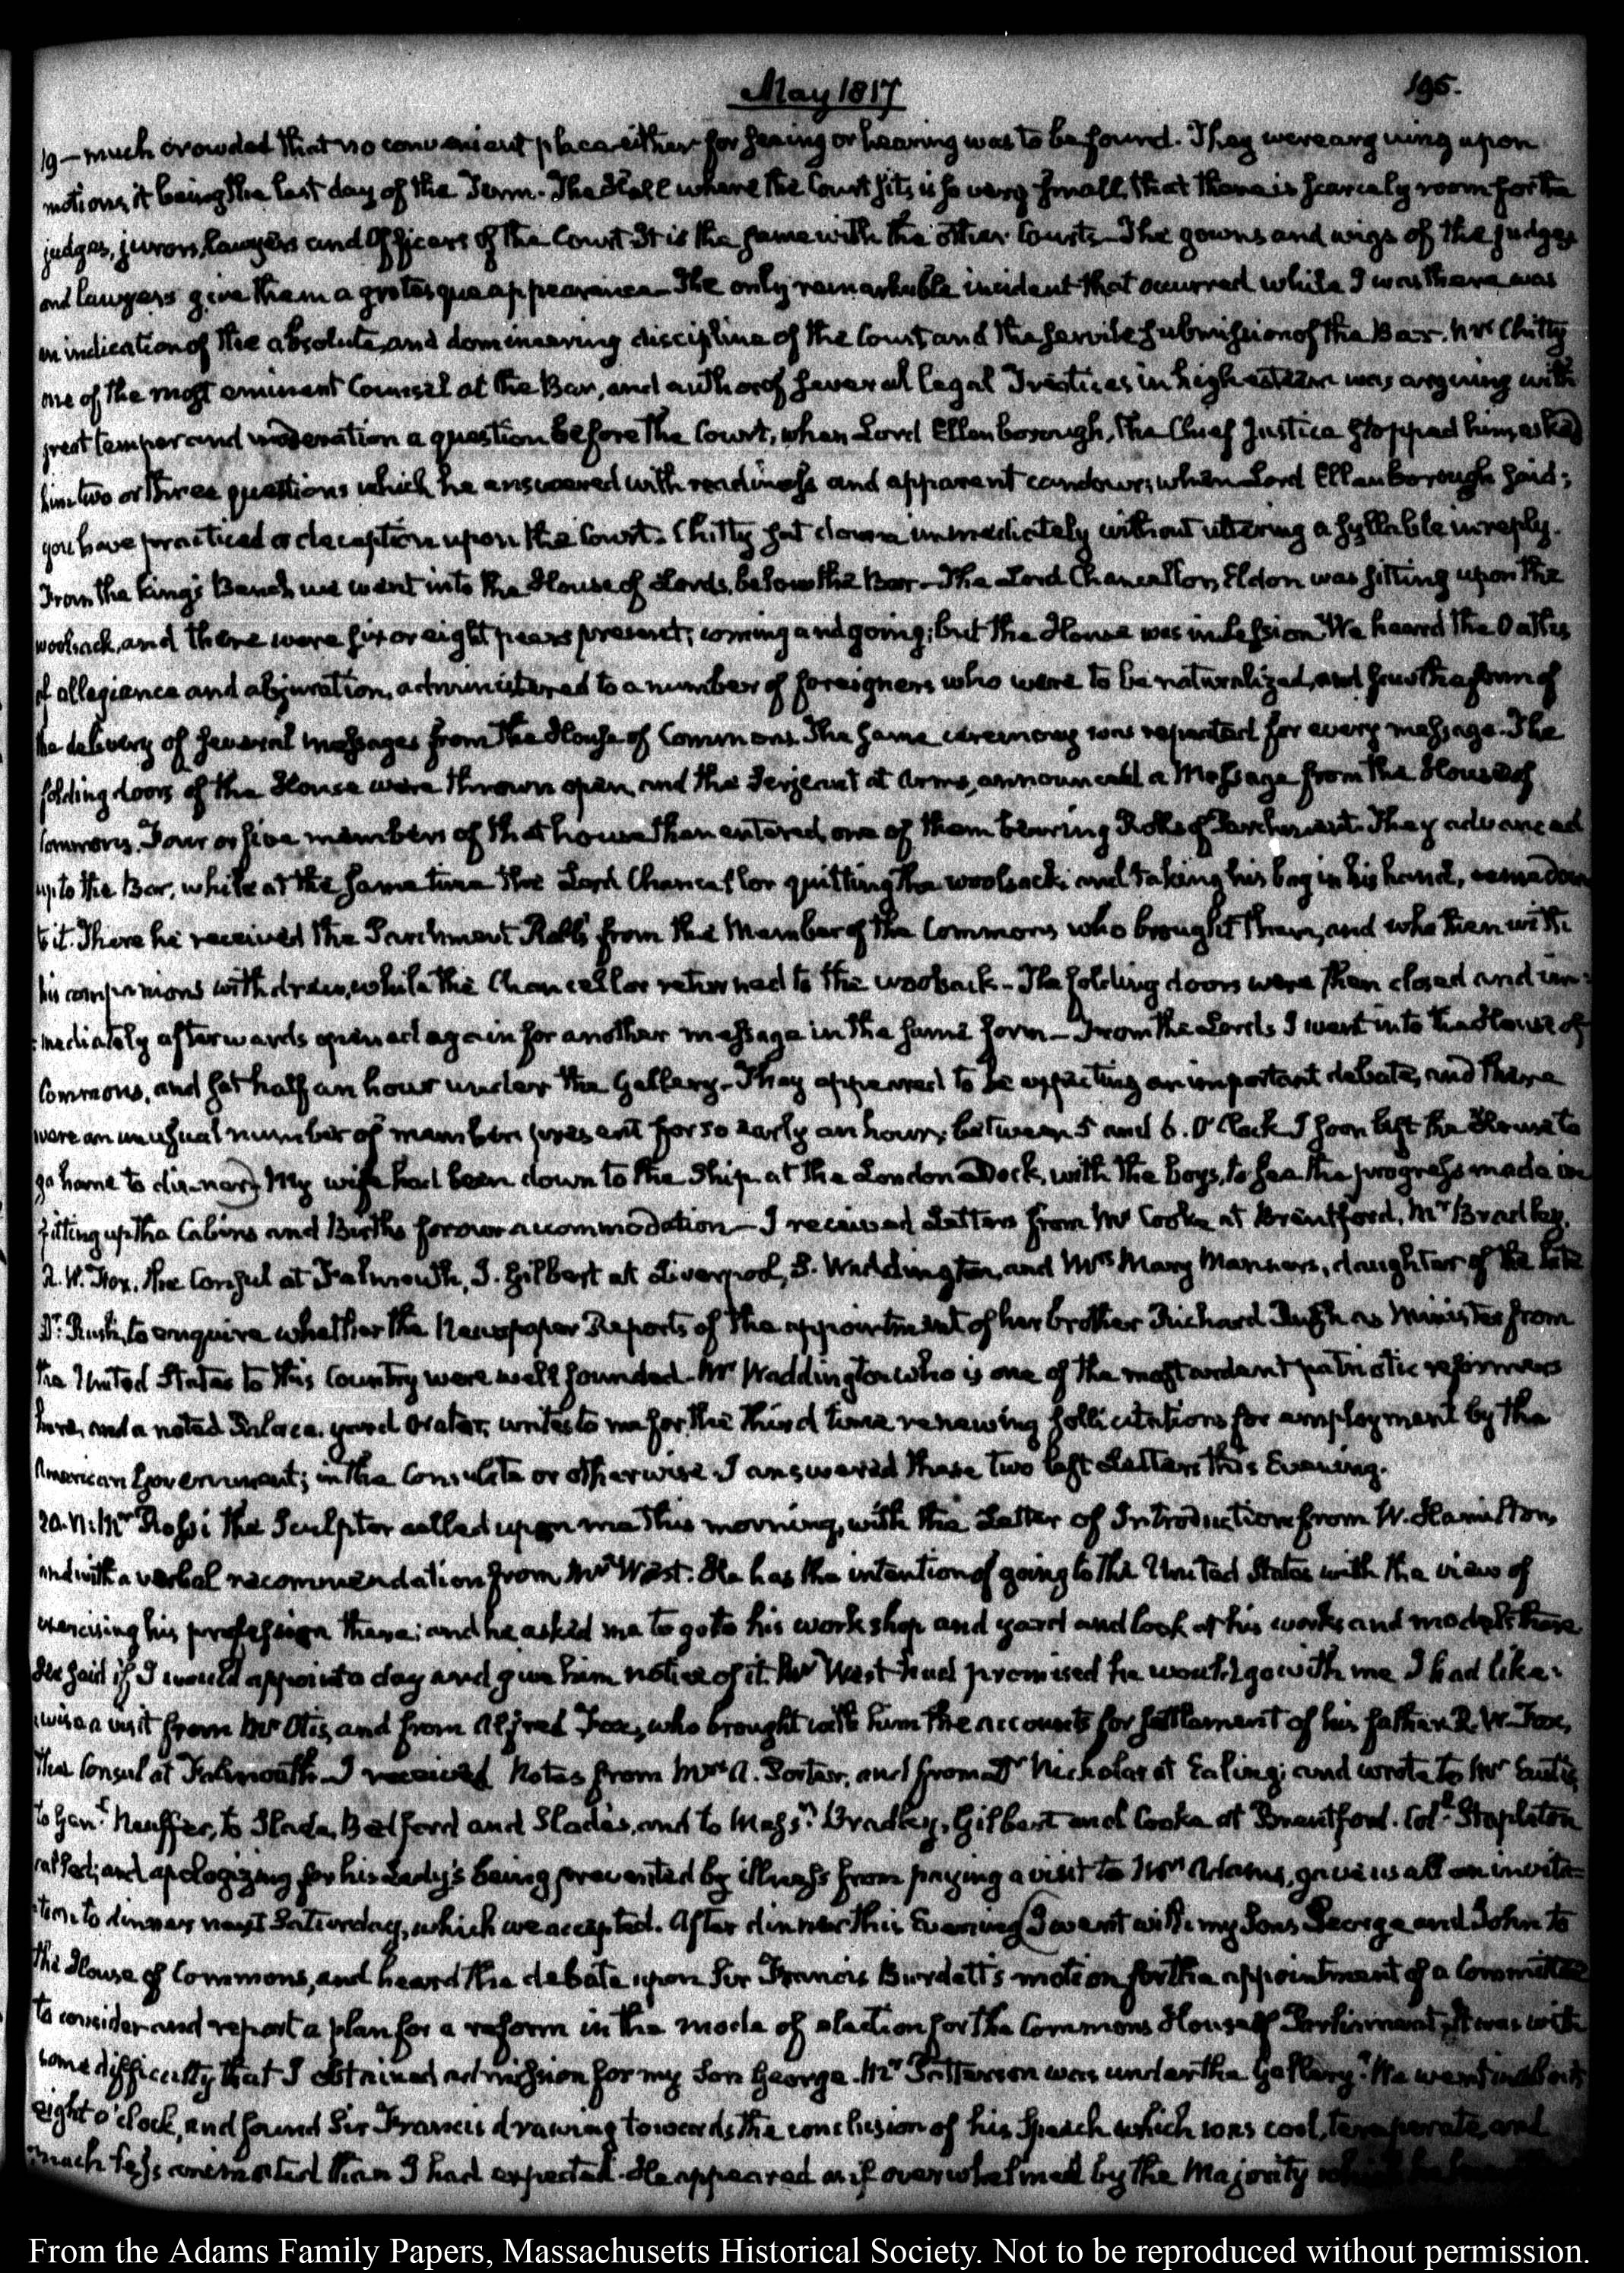 May 1817
195.
19 — much crowded that no convenient place either for seeing or hearing was to be found. They were arguing upon
motions, it being the last day of the Term. The Hall where the Court sits, is so very small, that there is scarcely room for the
judges, jurors, lawyers and Officers of the Court. It is the same with the other Courts — The gowns and wigs of the judges
and lawyers give them a grotesque appearance — The only remarkable incident that occurred while I was there was
an indication of the absolute, and domineering discipline of the Court and the servile submission of the Bar. Mr Chitty
one of the most eminent Counsel at the Bar, and author of several legal Treatises in high esteem was arguing with
great temper and moderation a question before the Court, when Lord Ellenborough, the Chief Justice stopped him, asked
him two or three questions which he answered with readiness and apparent candour; when Lord Ellenborough said;
you have practiced a deception upon the Court. Chitty sat down immediately without uttering a syllable in reply.
From the King's Bench we went into the House of Lords, below the Bar — The Lord Chancellor, Eldon was sitting upon the
woolsack, and there were six or eight peers present; coming and going; but the House was in Session. We heard the Oaths
of allegiance and abjuration, administered to a number of foreigners who were to be naturalized, and saw the form of
the delivery of several messages from the House of Commons. The same ceremony was repeated for every message. The
folding doors of the House were thrown open, and the Serjeant at Arms, announced a Message from the House of
Commons. Four or five members of that house then entered, one of them bearing Rolls of Parchment. They advanced
up to the Bar, while at the same time the Lord Chancellor quitting the woolsack, and taking his bag in his hand, came down
to it. There he received the Parchment Rolls from the Member of the Commons who brought them, and who then with
his companions withdrew, while the Chancellor returned to the woolsack — The folding doors were then closed and im-
:mediately afterwards opened again for another message in the same form — From the Lords I went into the House of
Commons, and sat half an hour under the Gallery — They appeared to be expecting an important debate, and there
were an unusual number of members present for so early an hour; between 5 and 6. O'Clock I soon left the House to
go home to dinner) My wife had been down to the Ship, at the London Dock, with the boys, to see the progress made in
fitting up the Cabins and Births for our accommodation — I received Letters from Mr Cooke at Brentford, Mr Bradley,
R. W. Fox, the Consul at Falmouth, J. Gilbert at Liverpool, S. Waddington, and Mrs Mary Manners, daughter of the late
Dr. Rush, to enquire whether the Newspaper Reports of the appointment of her brother Richard Rush as Minister from
the United States to this Country were well founded — Mr Waddington who is one of the most ardent patriotic reformers
here, and a noted Palace-yard Orator, writes to me for the third time renewing sollicitations for employment by the
American Government; in the Consulate or otherwise. I answered these two last Letters this Evening.
20. V: Mr Rossi the Sculptor called upon me this morning, with the Letter of Introduction from W. Hamilton,
and with a verbal recommendation from Mr West. He has the intention of going to the United States with the view of
exercising his profession there; and he asked me to go to his workshop and yard and look at his works and models there.
He said if I would appoint a day and give him notice of it Mr West had promised he would go with me I had like-
:wise a visit from Mr Otis, and from Alfred Fox, who brought with him the accounts for settlement of his father R. W. Fox,
the Consul at Falmouth — I received Notes from Mrs A. Porter, and from Dr Nicholas at Ealing; and wrote to Mr Eustis,
to Genl. Neuffer, to Slade, Bedford and Slade's, and to Messrs. Bradley, Gilbert and Cooke at Brentford. Coll. Stapleton
called; and apologizing for his Lady's being prevented by illness from paying a visit to Mrs Adams, gave us all an invita-
:tion to dinner next Saturday, which we accepted. After dinner this Evening (I went with my Sons George and John to
the House of Commons, and heard the debate upon Sir Francis Burdett's motion for the appointment of a Committee
to consider and report a plan for a reform in the mode of election for the Commons House of Parliament. It was with
some difficulty that I obtained admission for my Son George. Mr Patterson was under the Gallery. We went in about
eight o'clock, and found Sir Francis drawing towards the conclusion of his Speech which was cool, temperate, and
much less animated than I had expected. He appeared as if overwhelmed by the Majority which
From the Adams Family Papers, Massachusetts Historical Society. Not to be reproduced without permission.